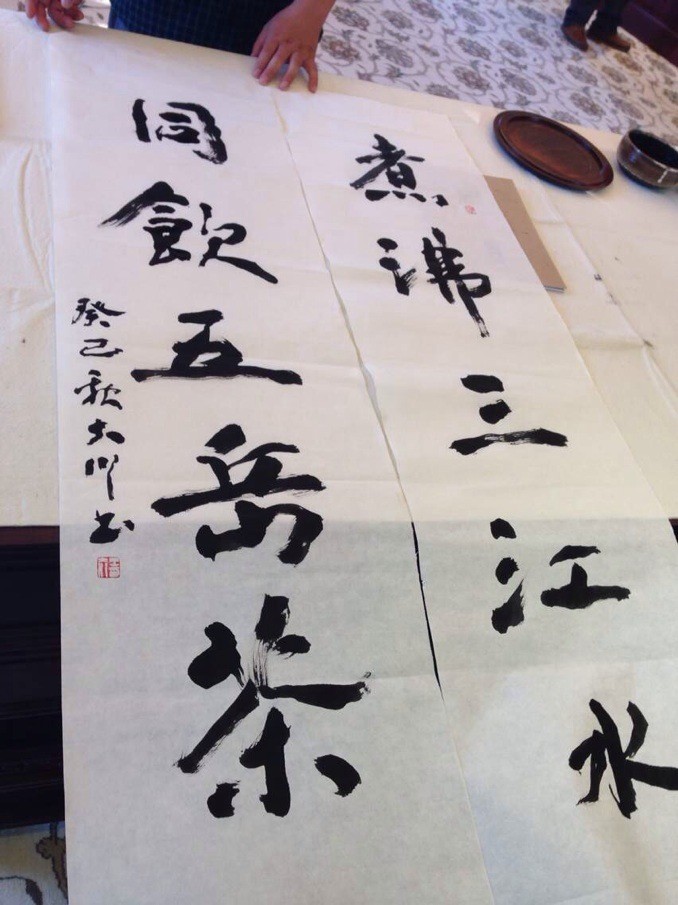 煮沸三江水
同飲五岳茶
癸巳秋大川书